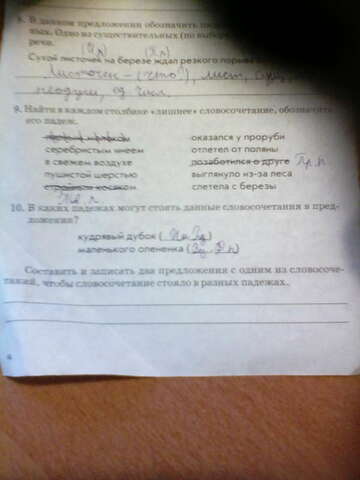 8. В данном предложении обозначить
ных. Одно из существительных (по выбору
речи.
(И п) (В п)
Сухой листочек на березе ждал резкого порыва
Листочек - (что?), лист, сущ,
неодуш, ед. чис.
9. Найти в каждом столбике «лишнее» словосочетание, обозначить
его падеж.
оказался у проруби
серебристым инеем отлетел от поляны
в свежем воздухе позаботился о друге Пр. п
пушистой шерстью выглянуло из-за леса
стройным слетела с березы
10. В каких падежах могут стоять данные словосочетания в пред-
ложении?
кудрявый дубок (
маленького олененка (
Составить и записать два предложения с одним из словосоче-
таний, чтобы словосочетание стояло в разных падежах.